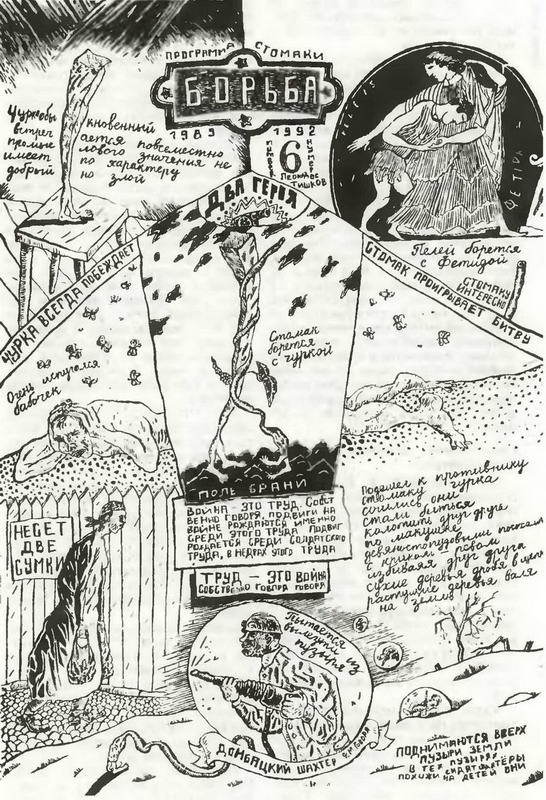 ПРОГРАММА СТОМАКИ
БОРЬБА
1989 1992
НОМЕР
6
НУМЕР
ЛЕОНИДОС
ТИШКОВ
ДВА ГЕРОЯ
Чуркообы кновенный
встреч ается повсеместно
промыс лового значения не
имеет по характеру
добрый но злой
ПЕЛЕЙ
ФЕТИДА
Пелей борется
с Фетидой
ЧУРКА ВСЕГДА ПОБЕЖДАЕТ
СТОМАК ПРОИГРЫВАЕТ БИТВУ
СТОМАКУ
ИНТЕРЕСНО
Стомак
борется
с чуркой
Очень испугался
бабочек
ПОЛЕ БРАНИ
ВОЙНА – ЭТО ТРУД. СОБСТ
ВЕННО ГОВОРЯ, ПОДВИГИ НА
ВОЙНЕ РОЖДАЮТСЯ ИМЕННО
СРЕДИ ЭТОГО ТРУДА. ПОДВИГ
РОЖДАЕТСЯ СРЕДИ СОЛДАТСКОГО
ТРУДА, В НЕДРАХ ЭТОГО ТРУДА
ТРУД – ЭТО ВОЙНА
СОБСТВЕННО ГОВОРЯ ГОВОРЯ
НЕСЕТ
ДВЕ
СУМКИ
Подошел к противнику
стомаку чурка
сочились они
стали биться
колотить друг друга
по макушке
девяностопудовыми
с криком ревом
избивая друг друга
сухие деревья дробя в щепки
растущие деревья валя
на землю
Пытается
вылезти из
пузыря
ДОНБАЦКИЙ ШАХТЕР
ПОДНИМАЮТСЯ ВВЕРХ
ПУЗЫРИ ЗЕМЛИ
В ТЕХ ПУЗЫРЯХ
СИДЯТ ШАХТЁРЫ
ПОХОЖИ НА ДЕТЕЙ ОНИ